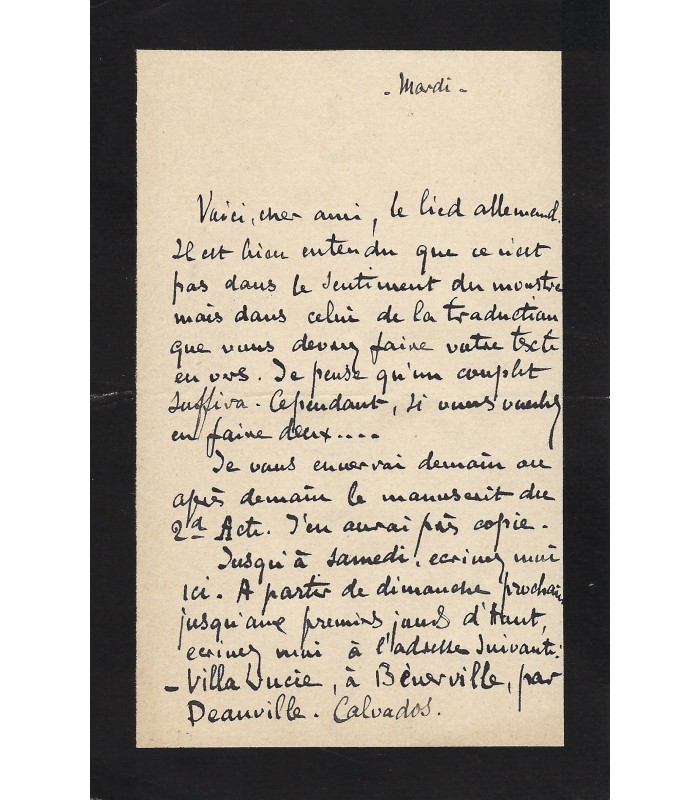 - Mardi -
Voici, cher ami, le lied allemand.
Il est bien entendu que ce n'est
pas dans le sentiment du monstre
mais dans celui de la traduction
que vous devrez faire votre texte
en vers. Je pense qu'un couplet
suffira. Cependant, si vous voulez
en faire deux....
Je vous enverrai demain ou
après demain le manuscrit du
2d Acte. J'en aurai pris copie.
Jusqu'à samedi, ecrivez moi
ici. A partir de dimanche prochain
jusqu'aux premiers jours d'Août,
ecrivez moi à l'adresse suivante:
- Villa Lucie, à Bénerville, par
Deauville. Calvados.